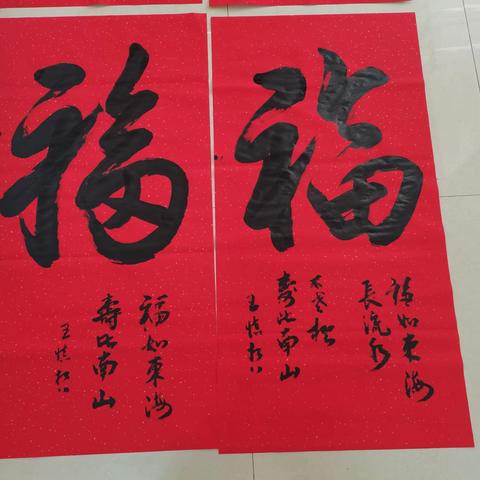 福
福如東海
壽比南山
王慎
福
福如東海
長流水
不老松
壽比南山
王慎